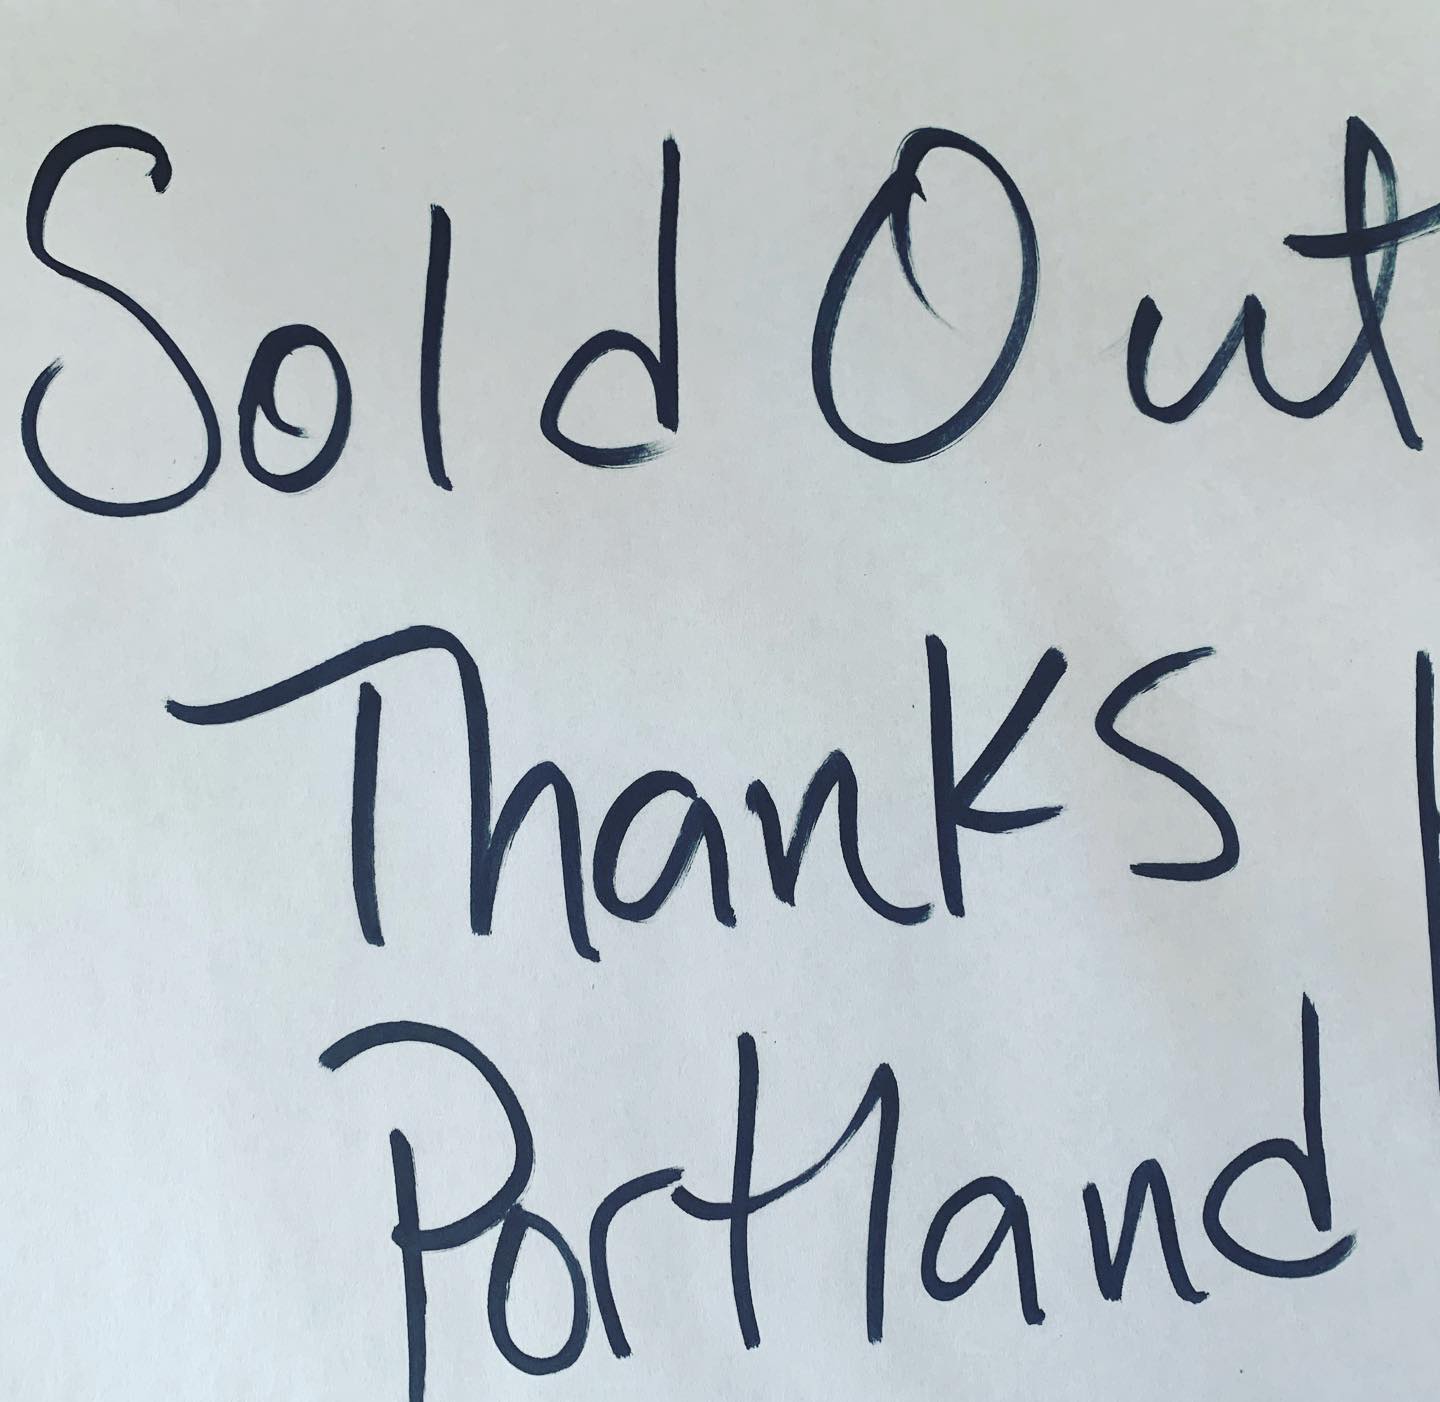 Sold Out
Thanks
Portland